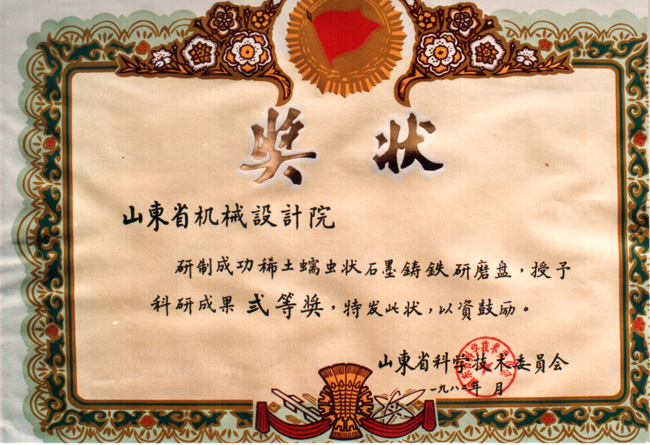 奖状
山東省机械設計院
研制成功稀土蠕虫状石墨鑄鉄研磨盘，授予
科研成果弍等奖，特发此状，以資鼓励。
山東省科学技术委員会
一九八二年 月